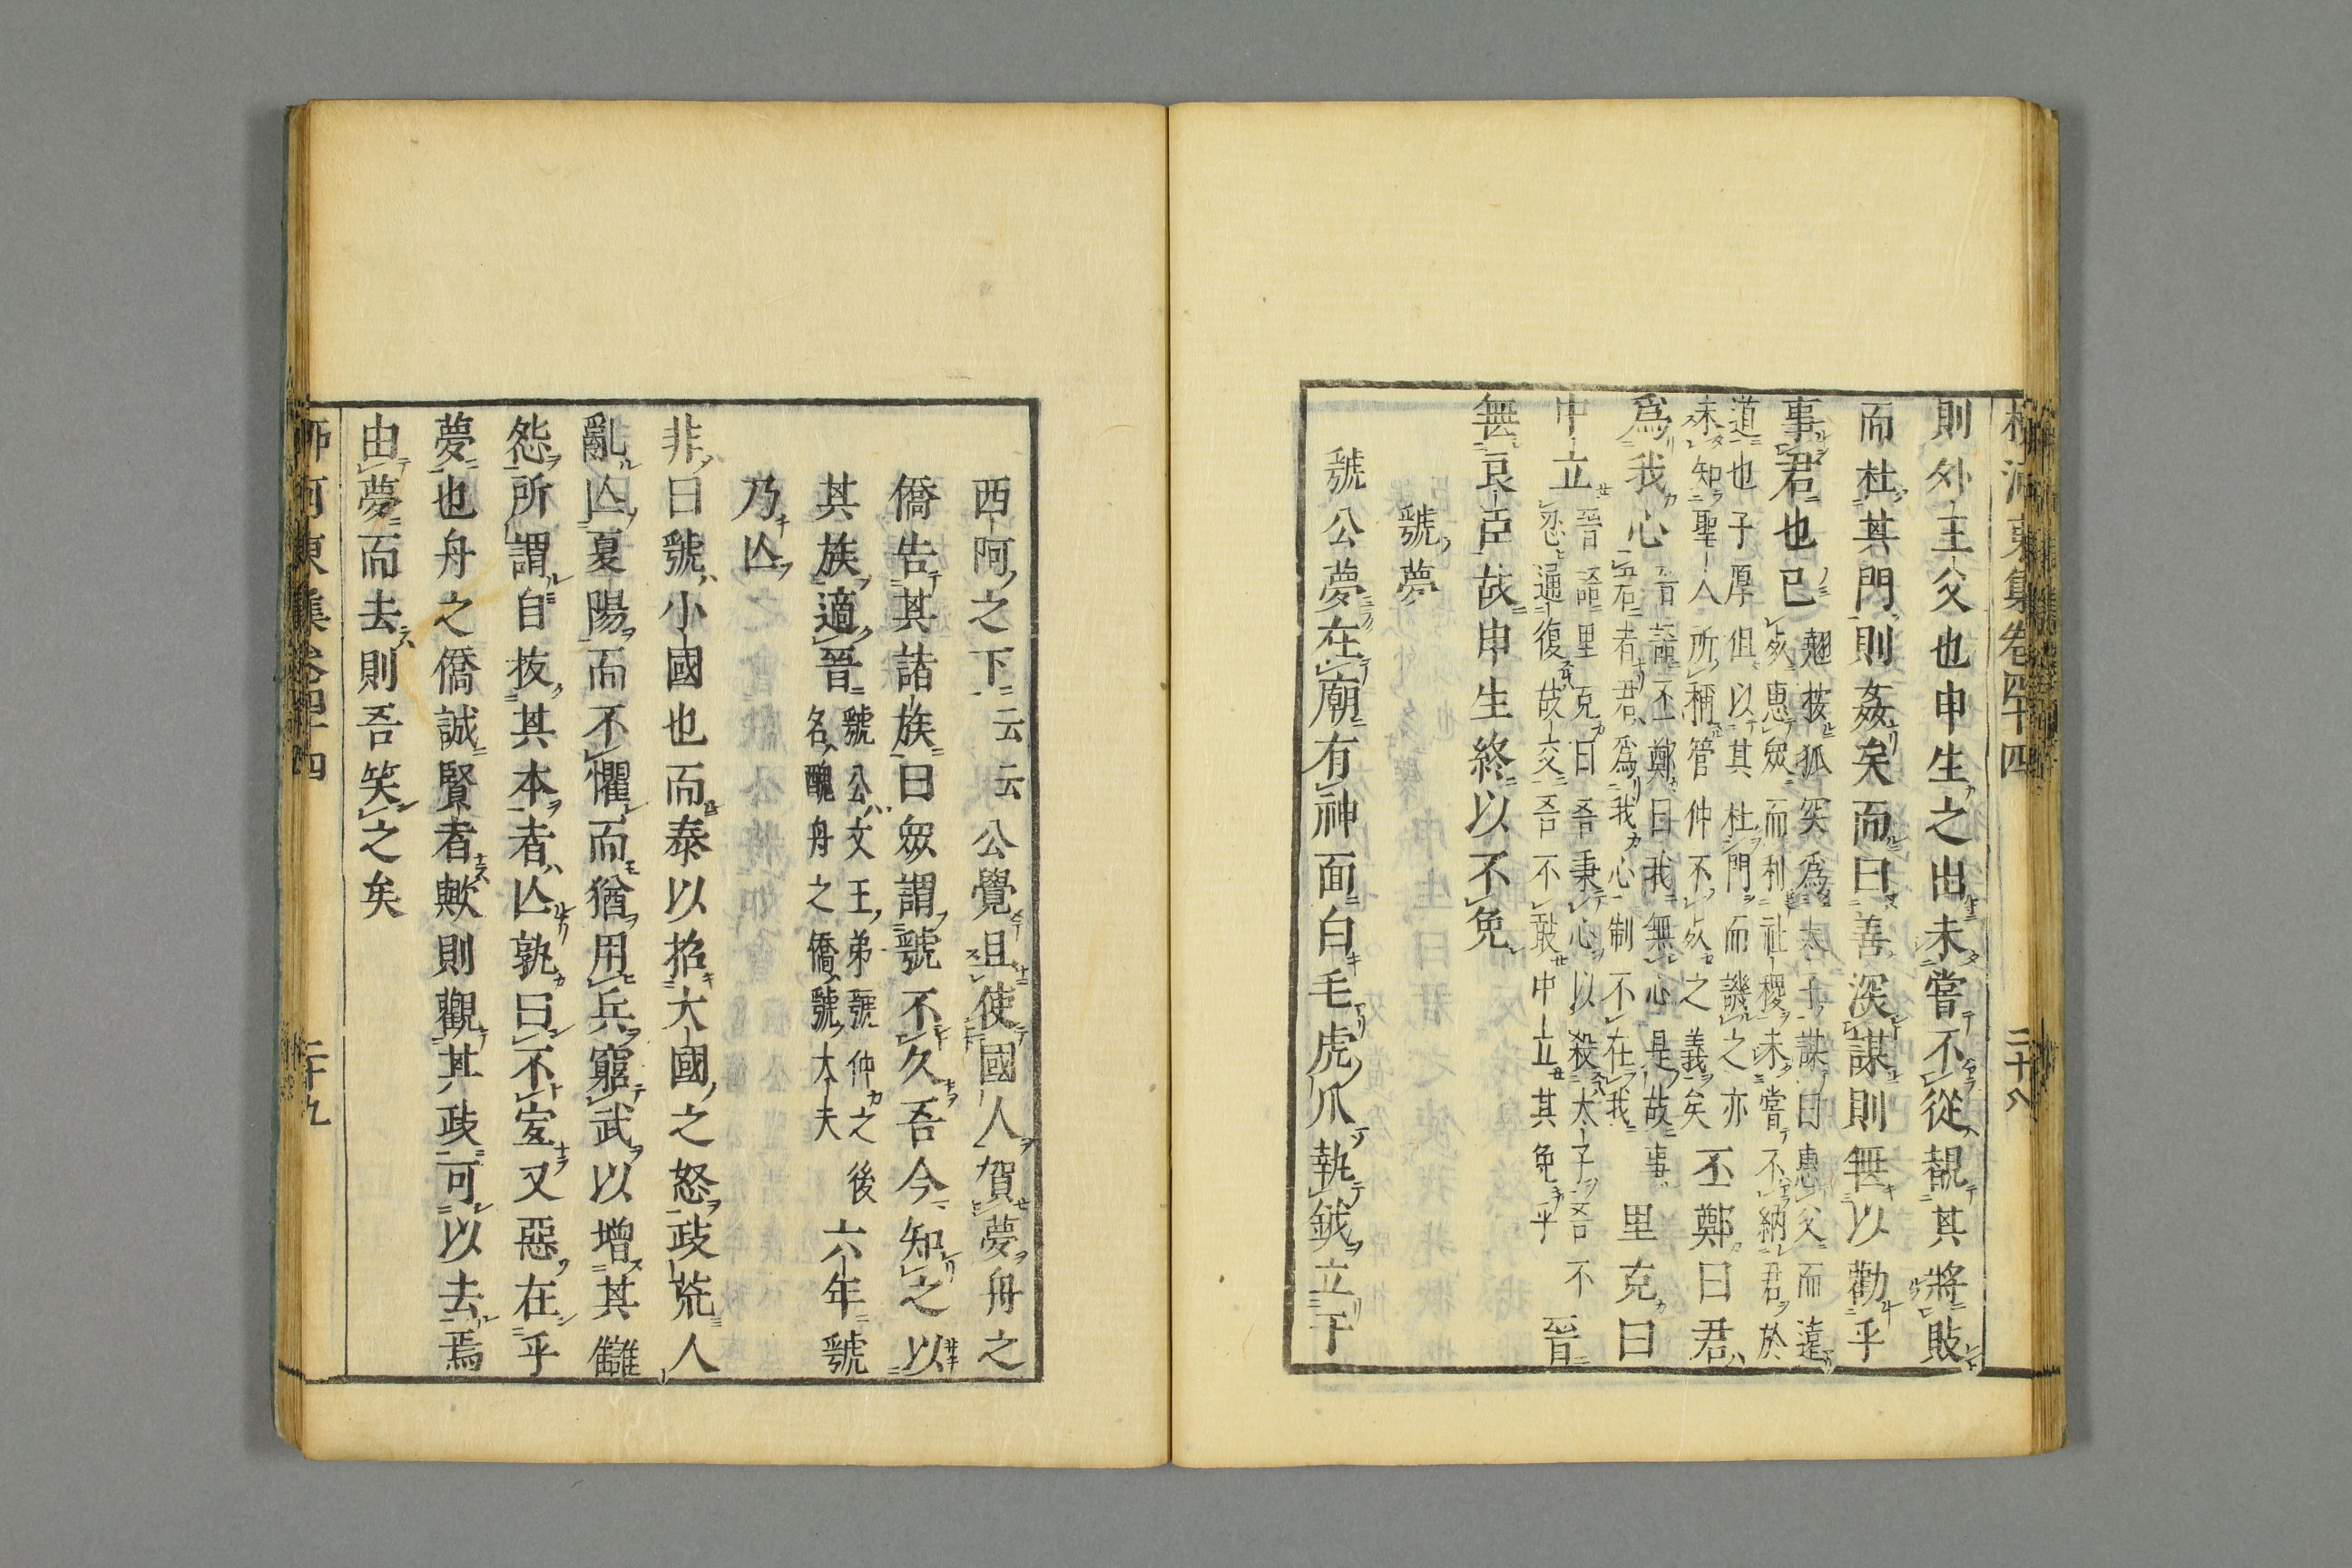 柳河東集卷四十四 二十八
則外王父也申生之出未嘗不從覩其將敗
而杜其門則姦矣而曰善深謀則無以勸乎
事君也已
趣按狐突爲太子謀曰惠父而遠
於惠衆而利社稷未嘗不納君於
道也子厚但以其杜門而譏之亦
未知聖人所稱管仲不死之義矣
丕鄭曰君
爲我心
旨謂丕鄭曰我無心是故事
君者君爲我心制不在我
里克曰
中立
晉語里克曰吾秉心以殺太子吾不
忍通復故交吾不敢中立其免乎
晉
無良臣故申生終以不免
虢夢
虢公夢在廟有神面白毛虎爪執鉞立于
西阿之下云云公覺且使國人賀夢舟之
僑告其諸族曰衆謂虢不久吾今知之以
其族適晉
虢公文王弟虢仲之後
名醜舟之僑虢大夫
六年虢
乃亾
非曰虢小國也而泰以招大國之怒政荒人
亂亾夏陽而不懼而猶用兵窮武以增其讎
怨所謂自拔其本者亾孰曰不宜又惡在乎
夢也舟之僑誠賢者歟則觀其政可以去焉
由夢而去則吾笑之矣
河東集卷四十四 二十九